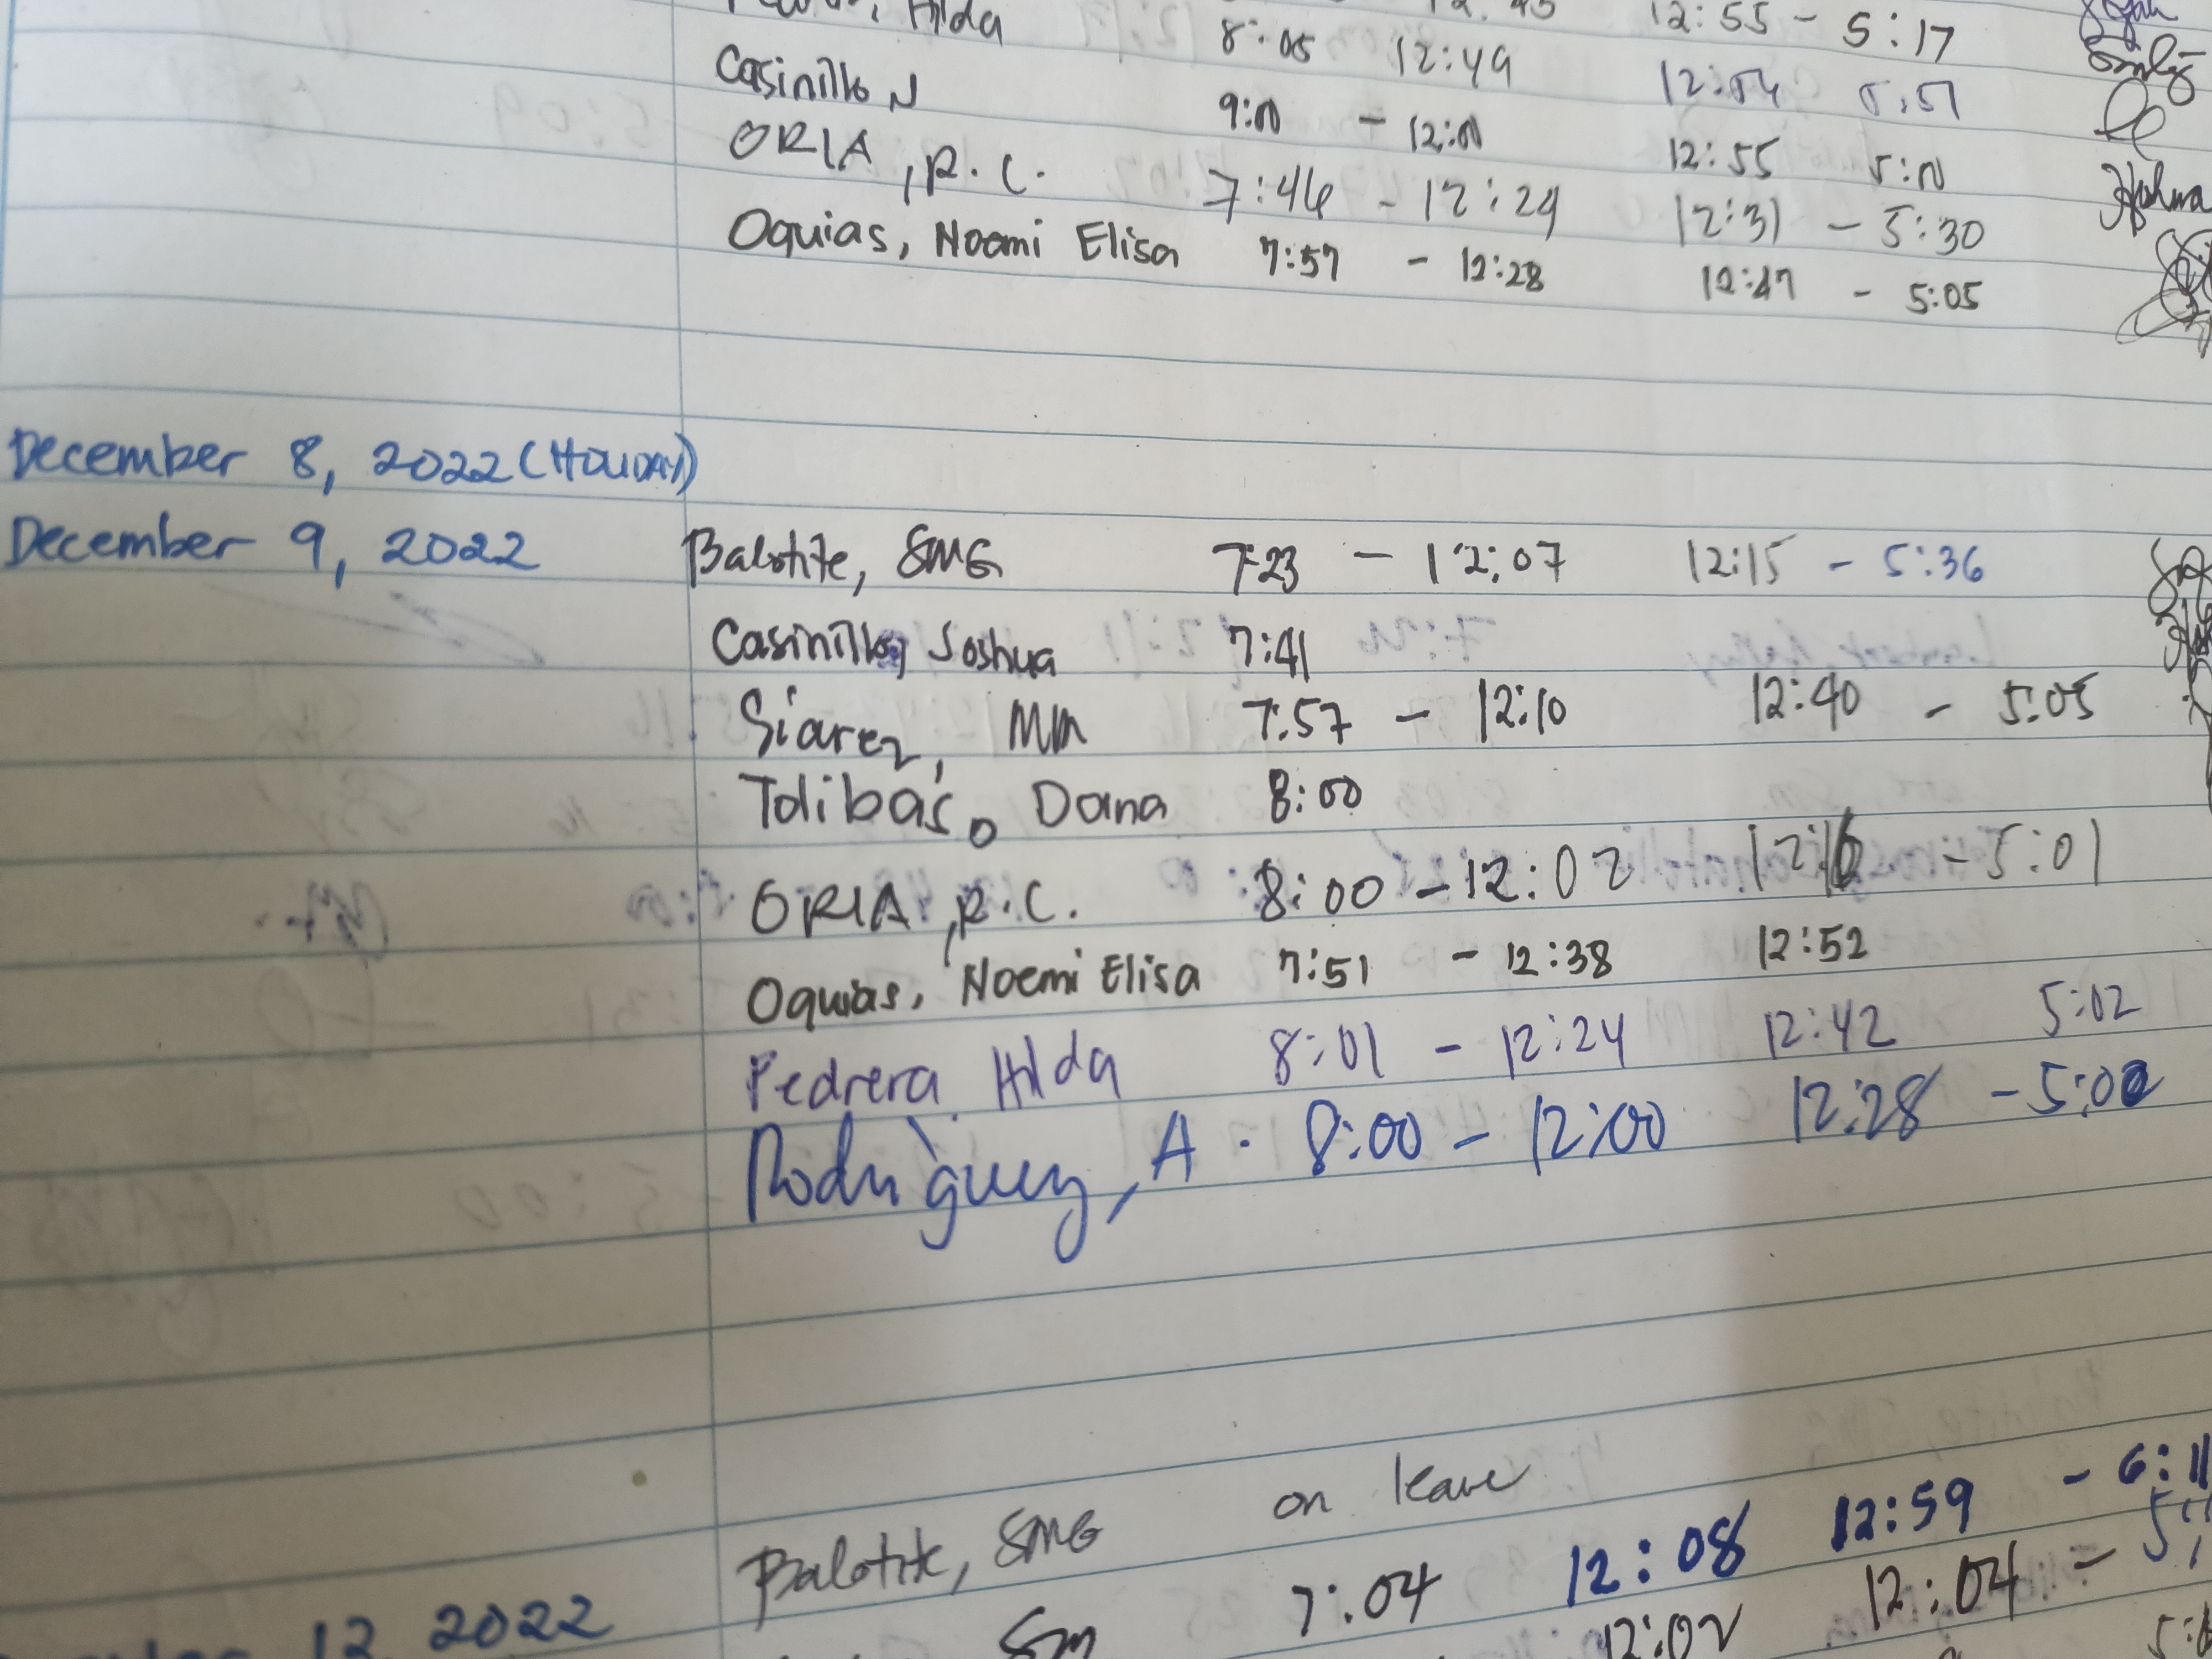 Hilda 8:05 12:49 12:55 - 5:17
Casinillo J 9:00 - 12:00 12:54 5:51
ORIA, R.C. 7:46 - 12:29 12:55 5:00
Oquias, Noemi Elisa 7:57 - 12:28 12:31 - 5:30
12:47 - 5:05
December 8, 2022 (HOLIDAY)
December 9, 2022 Balotite, SMG 7:23 - 12:07 12:15 - 5:36
Casinillo, Joshua 7:41
Siarez, MM 7:57 - 12:10 12:40 - 5:05
Tolibas, Dana 8:00
ORIA, R.C. 8:00 - 12:02 12:16 - 5:01
Oquias, Noemi Elisa 7:51 - 12:38 12:52
Pedrera, Hilda 8:01 - 12:24 12:42 5:02
Rodriguez, A. 8:00 - 12:00 12:28 - 5:00
Balotite, SMG on leave
12, 2022 7:04 12:08 12:59 - 6:11
12:02 12:04 -